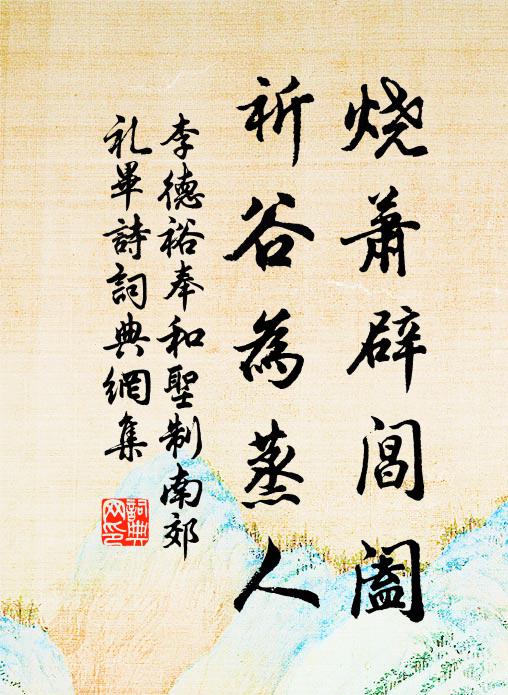 烧萧辟阊阖
祈谷為蒸人
李德裕奉和聖制南郊
礼畢詩詞典網集
詞典
网印